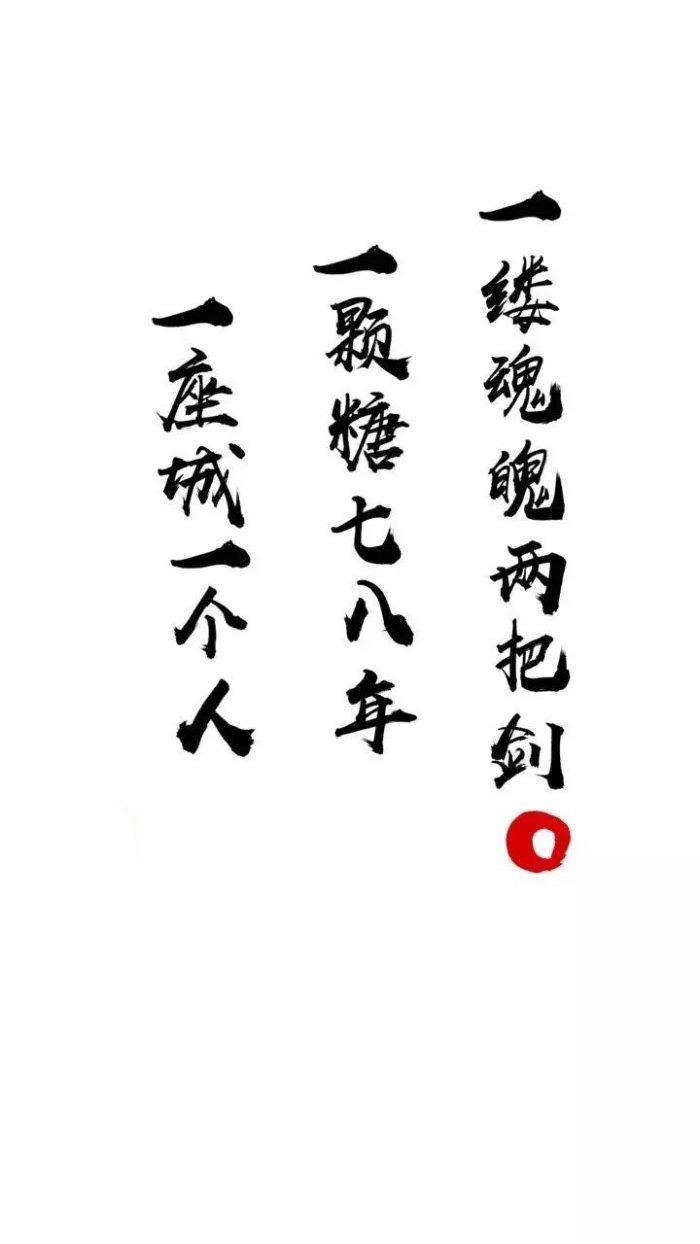 一缕魂魄两把剑
一颗糖七八年
一座城一个人